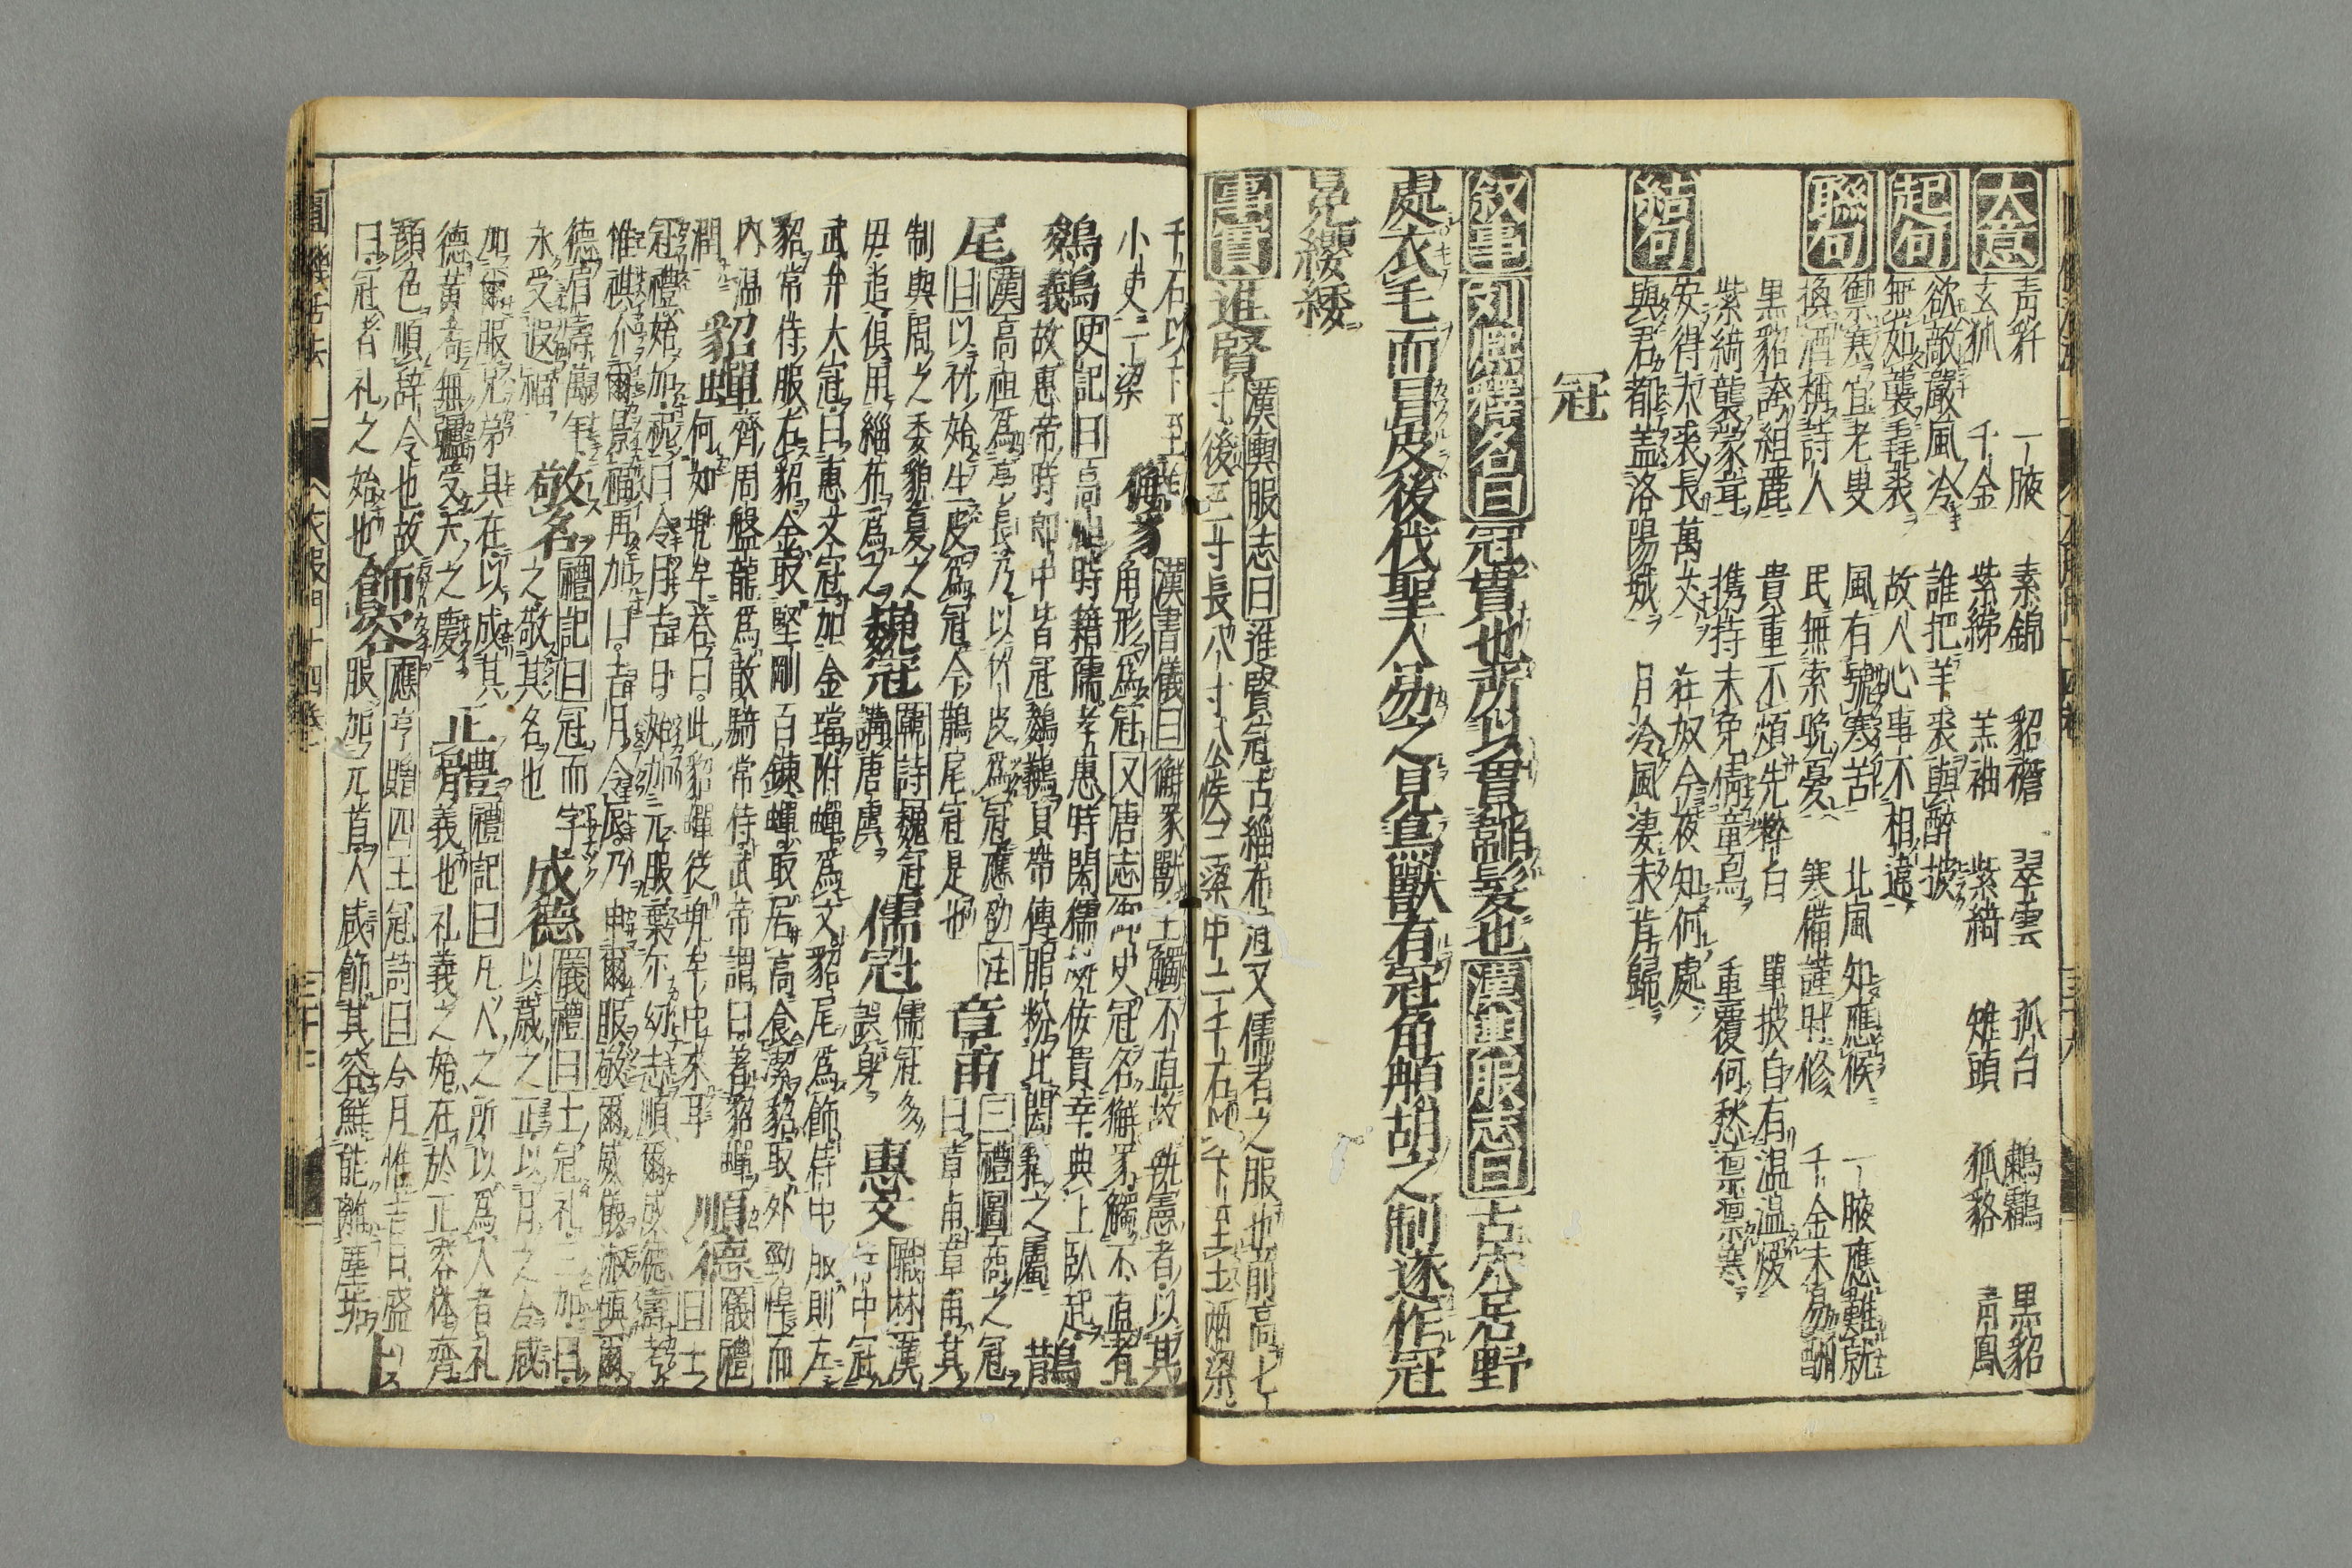 大意
青豻 一腋 素錦 貂襜 翠雲 狐白 鷫鸘 黒貂
玄狐 千金 紫綈 羔袖 紫綺 雉頭 狐貉 青鳳
起句
欲敵嚴風冷 誰把羊裘與醉披
無茹襲毳裘 故人心事不相違
聯句
禦寒宜老叟 風有號寒苦 北風知應候 一腋應難就
換酒稱詩人 民無索晩憂 寒備謹時修 千金未易酬
黒貂誇組麗 貴重不煩先粹白 單披自有温温煖
紫綺襲蒙茸 携持未免倩童烏 重覆何愁凛凛寒
結句
安得大裘長萬丈 在奴今夜知何處
與君都盖洛陽城 月冷風凄未肯歸
冠
叙事 劉熈釋名曰 冠貫也所以貫韜髮也 漢輿服志曰 古穴居野
處衣毛而冒皮後代聖人易之見鳥獸有冠角䫇胡之制遂作冠
冕纓緌
事實 進賢 漢輿服志曰 進賢冠古緇布冠又儒者之服也前高七
寸後三寸長八寸公侯三梁中二千石以下至士兩梁
千石以下至 獬豸 漢書儀曰 獬豸獸主觸不直故執憲者以其
小史一梁 角形爲冠 又唐志 御史冠名獬豸觸不直者
鵔鸃 史記曰 高祖時籍孺孝惠時閎孺以佞貴幸典上臥起
義故惠帝時郎中皆冠鵔鸃貝帶傅脂粉比閎籍之屬 鵲
尾 漢 高祖爲亭長乃以竹皮爲冠應劭 注 章甫 三禮圖 商之冠
曰 以竹始生皮爲冠今鵲尾冠是也 曰章甫章甫其
制與周之委貌夏之 魏冠 韓詩 魏冠 儒冠 儒冠多 惠文 職林 漢
毋追俱用緇布爲之 講唐虞 誤身 侍中冠
武弁大冠曰惠文冠加金璫附蟬爲文貂尾爲飾侍中服則左
貂常侍服右貂金取堅剛百鍊蟬取居高食潔貂取外勁悍而
内温 貂蟬 齊周盤龍爲散騎常侍武帝謂曰著貂蟬 順德 儀禮
潤 此何如兜牟荅曰此貂蟬從兜牟中來耳 曰 士
冠禮始加祝曰令月吉日始加元服棄尓幼志順爾成德壽考
惟祺介爾景福再加曰吉月令辰乃申爾服敬爾威儀淑愼爾
德眉壽萬年 敬名 禮記曰 冠而字 成德 儀禮曰 士冠礼三加曰
永受遐福 之敬其名也 以歳之正以月之令咸
加爾服兄弟具在以成其 正體 禮記曰 凡人之所以爲人者礼
德黄耈無疆受天之慶 義也礼義之始在於正容体齊
顏色順辞令也故 飾容 應亨贈四王冠詩曰 令月惟吉日盛
曰冠者礼之始也 服加元首人咸飾其容鮮能離塵坋